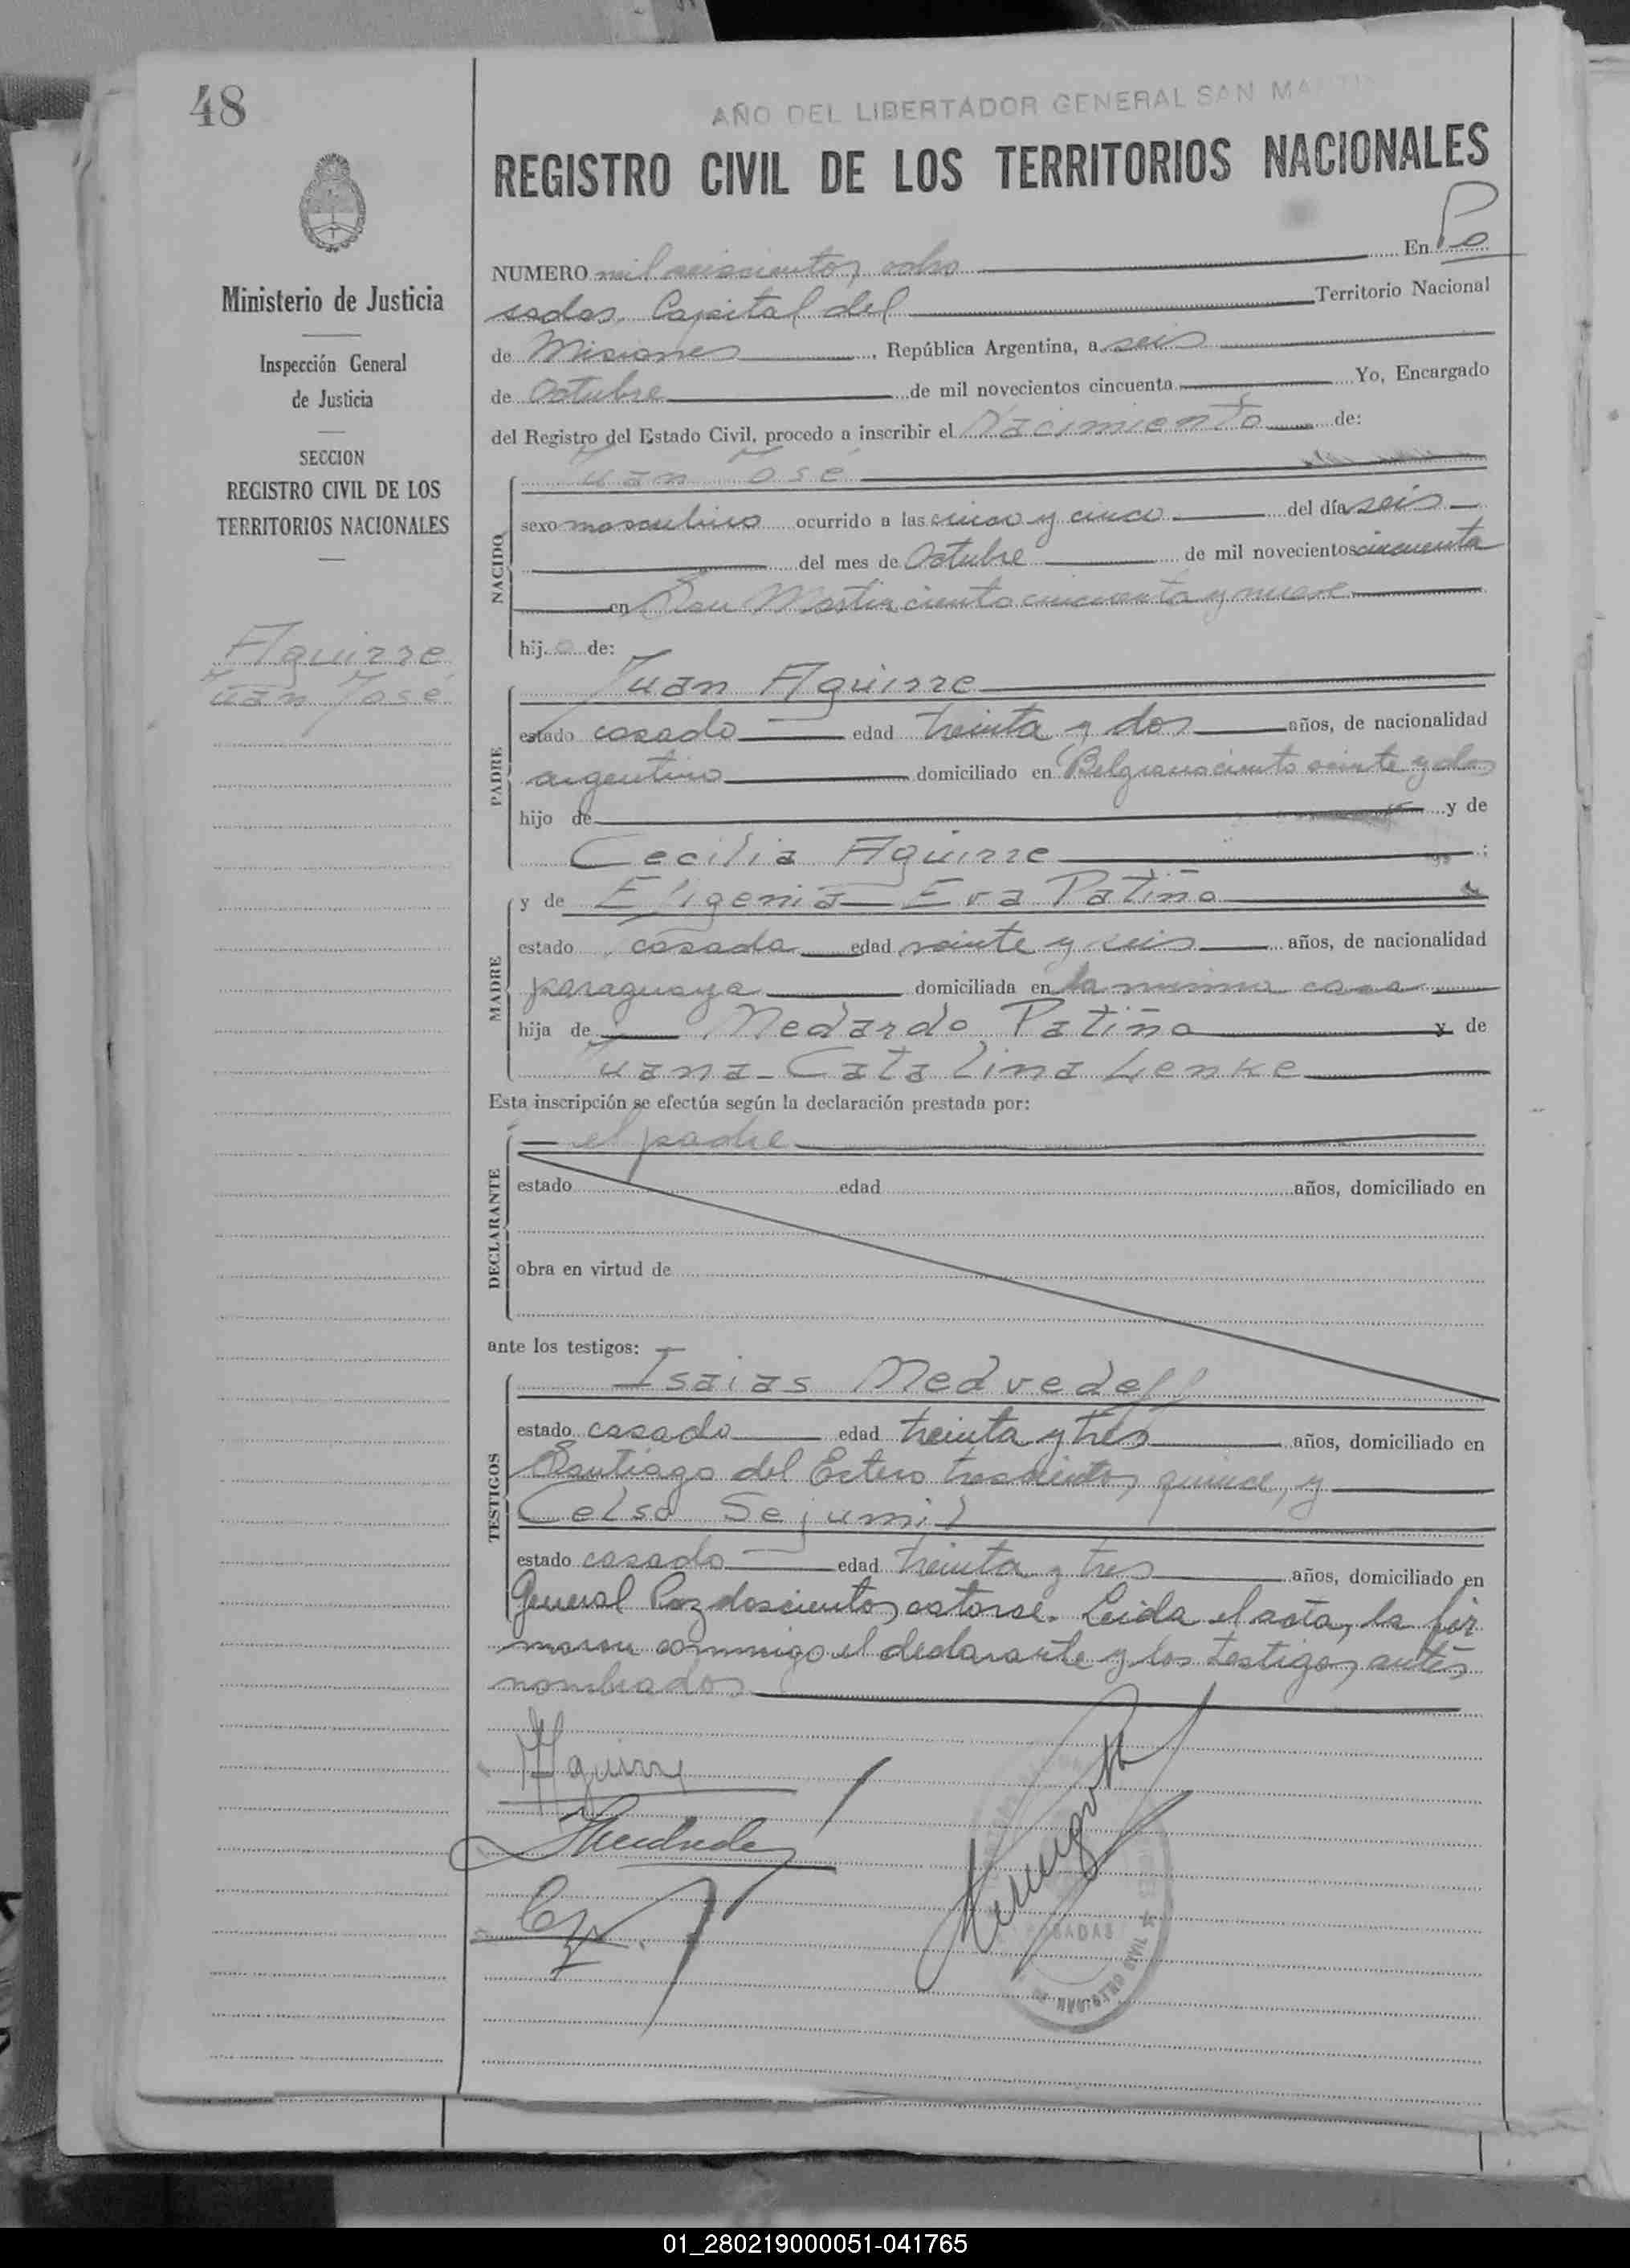 48
AÑO DEL LIBERTADOR GENERAL SAN MARTIN
REGISTRO CIVIL DE LOS TERRITORIOS NACIONALES
Ministerio de Justicia
Inspección General
de Justicia
SECCION
REGISTRO CIVIL DE LOS
TERRITORIOS NACIONALES
Aguirre
Juan José
NUMERO mil seiscientos ocho En Po
sadas, Capital del Territorio Nacional
de Misiones, República Argentina, a seis
de Octubre de mil novecientos cincuenta Yo, Encargado
del Registro del Estado Civil, procedo a inscribir el Nacimiento de:
NACIDO
Juan José
sexo masculino ocurrido a las cinco y cinco del día seis
del mes de Octubre de mil novecientos cincuenta
en San Martin ciento cincuenta y nueve
hijo de:
PADRE
Juan Aguirre
estado casado edad treinta y dos años, de nacionalidad
argentino domiciliado en Belgrano ciento veinte y dos
hijo de y de
Cecilia Aguirre ;
MADRE
y de Efigenia Eva Patiño
estado casada edad veinte y seis años, de nacionalidad
paraguaya domiciliada en la misma casa
hija de Medardo Patiño y de
Juana Catalina Lenke
Esta inscripción se efectúa según la declaración prestada por:
DECLARANTE
el padre
estado edad años, domiciliado en
obra en virtud de
ante los testigos:
TESTIGOS
Isaias Medvedeff
estado casado edad treinta y tres años, domiciliado en
Santiago del Estero trescientos quince, y
Celso Sejumil
estado casado edad treinta y tres años, domiciliado en
General Paz doscientos catorse. Leida el acta, la fir
maron conmigo el declarante y los testigos antes
nombrados
Aguirre
POSADAS
REGISTRO CIVIL
01_280219000051-041765